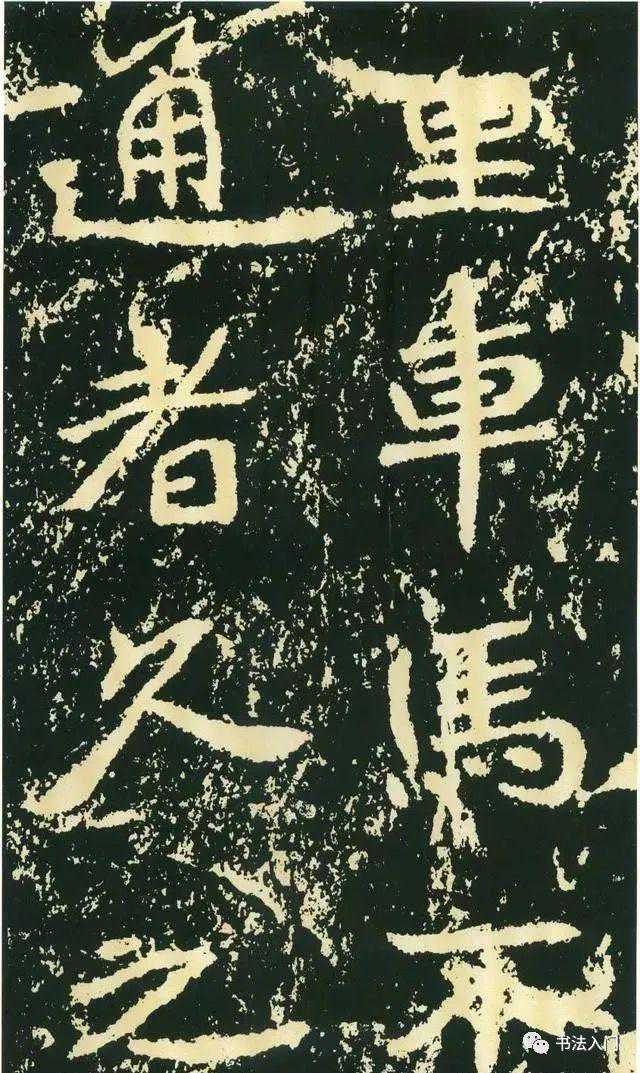 里車馬不
通者久之
书法入门